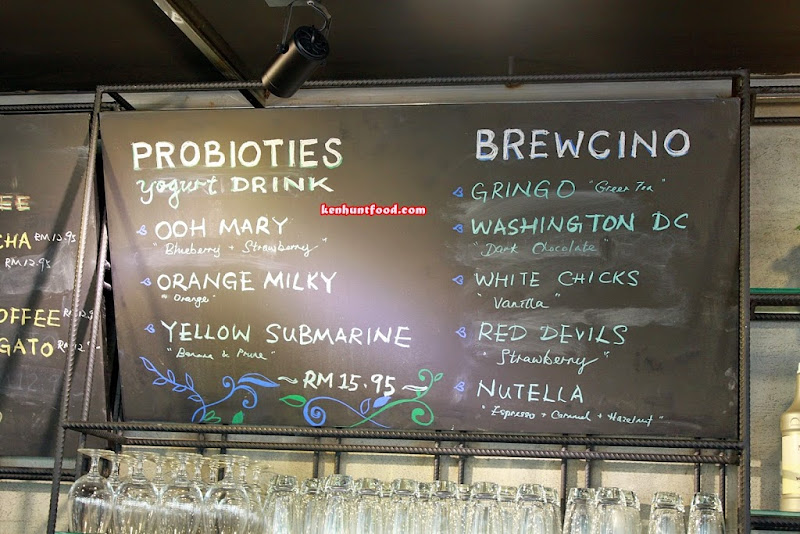 EE
CHA RM12.95
RM12.95
OFFEE
GATO RM12
PROBIOTIES
yogurt DRINK
OOH MARY
"Blueberry + Strawberry"
ORANGE MILKY
"Orange"
YELLOW SUBMARINE
"Banana & Prune"
~ RM 15.95 ~
kenhuntfood.com
BREWCINO
GRINGO "Green Tea"
WASHINGTON DC
"Dark Chocolate"
WHITE CHICKS
"Vanilla"
RED DEVILS
"Strawberry"
NUTELLA
"Espresso + Caramel + Hazelnut"